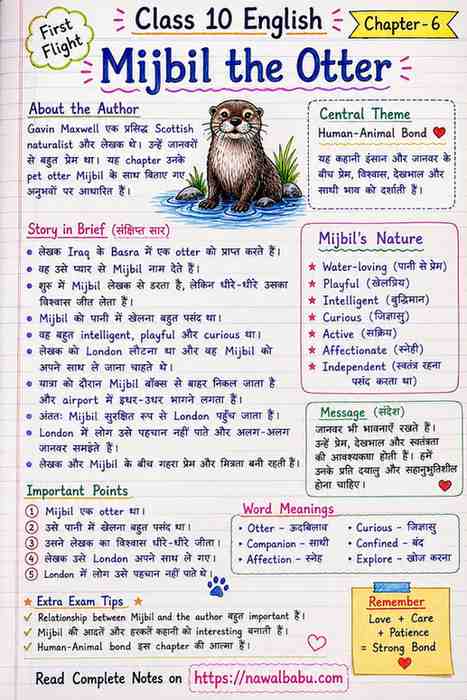 First
Flight
Class 10 English
Chapter-6
Mijbil the Otter
About the Author
Gavin Maxwell एक प्रसिद्ध Scottish
naturalist और लेखक थे। उन्हें जानवरों
से बहुत प्रेम था। यह chapter उनके
pet otter Mijbil के साथ बिताए गए
अनुभवों पर आधारित है।
Central Theme
Human-Animal Bond
यह कहानी इंसान और जानवर के
बीच प्रेम, विश्वास, देखभाल और
साथी भाव को दर्शाती है।
Story in Brief (संक्षिप्त सार)
• लेखक Iraq के Basra में एक otter को प्राप्त करते हैं।
• वह उसे प्यार से Mijbil नाम देते हैं।
• शुरू में Mijbil लेखक से डरता है, लेकिन धीरे-धीरे उसका
विश्वास जीत लेता है।
• Mijbil को पानी में खेलना बहुत पसंद था।
• वह बहुत intelligent, playful और curious था।
• लेखक को London लौटना था और वह Mijbil को
अपने साथ ले जाना चाहते थे।
• यात्रा को दौरान Mijbil बॉक्स से बाहर निकल जाता है
और airport में इधर-उधर भागने लगता है।
• अंततः Mijbil सुरक्षित रूप से London पहुँच जाता है।
• London में लोग उसे पहचान नहीं पाते और अलग-अलग
जानवर समझते हैं।
• लेखक और Mijbil के बीच गहरा प्रेम और मित्रता बनी रहती है।
Mijbil's Nature
★ Water-loving (पानी से प्रेम)
★ Playful (खेलप्रिय)
★ Intelligent (बुद्धिमान)
★ Curious (जिज्ञासु)
★ Active (सक्रिय)
★ Affectionate (स्नेही)
★ Independent (स्वतंत्र रहना
पसंद करता था)
Message (संदेश)
जानवर भी भावनाएँ रखते हैं।
उन्हें प्रेम, देखभाल और स्वतंत्रता
की आवश्यकता होती है। हमें
उनके प्रति दयालु और सहानुभूतिशील
होना चाहिए।
Important Points
1 Mijbil एक otter था।
2 उसे पानी में खेलना बहुत पसंद था।
3 उसने लेखक का विश्वास धीरे-धीरे जीता।
4 लेखक उसे London अपने साथ ले गए।
5 London में लोग उसे पहचान नहीं पाते थे।
Word Meanings
• Otter – ऊदबिलाव
• Companion – साथी
• Affection – स्नेह
• Curious – जिज्ञासु
• Confined – बंद
• Explore – खोज करना
★ Extra Exam Tips ★
✓ Relationship between Mijbil and the author बहुत important है।
✓ Mijbil की आदतें और हरकतें कहानी को interesting बनाती हैं।
✓ Human-Animal bond इस chapter की आत्मा है।
Remember
Love + Care
+ Patience
= Strong Bond
Read Complete Notes on https://nawalbabu.com